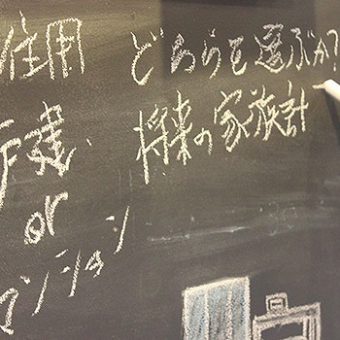 住用
戸建
or
マンション
どちらを選ぶか?
将来の家族計